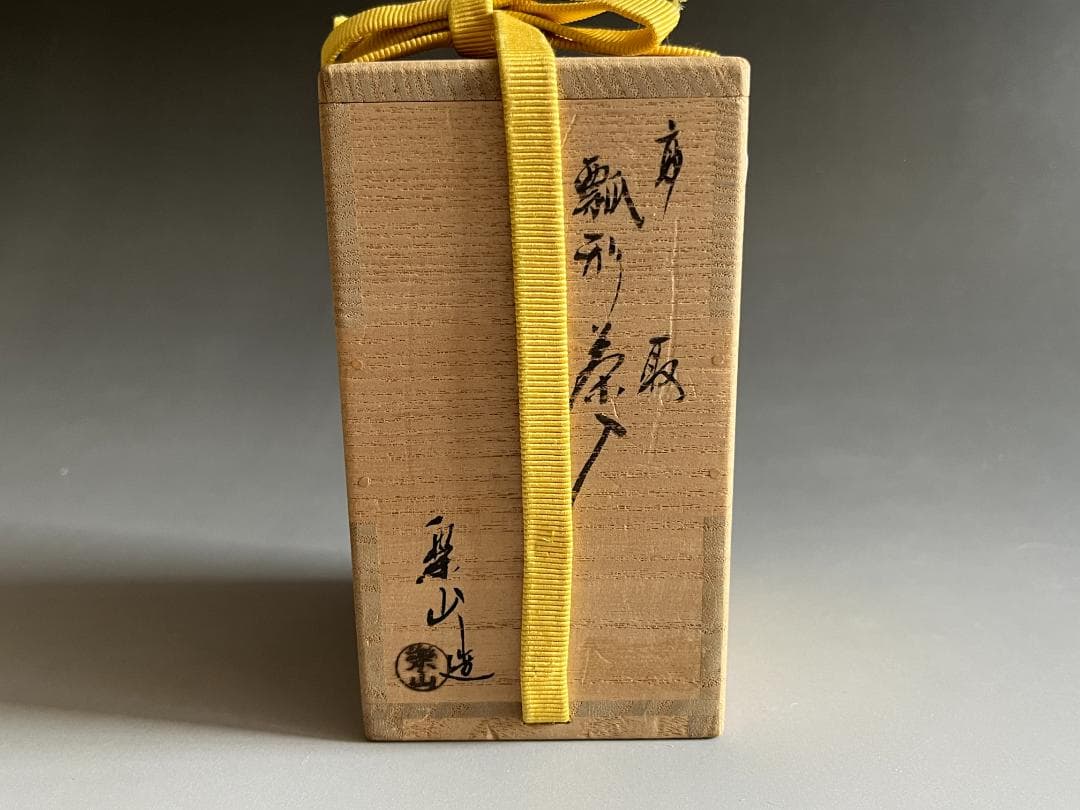 高取
瓢形茶入
楽山造
楽山